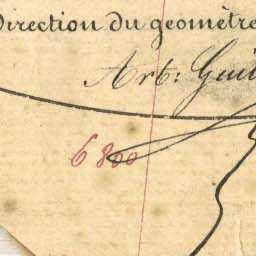 Direction du geomètre
Art: Guil
6800